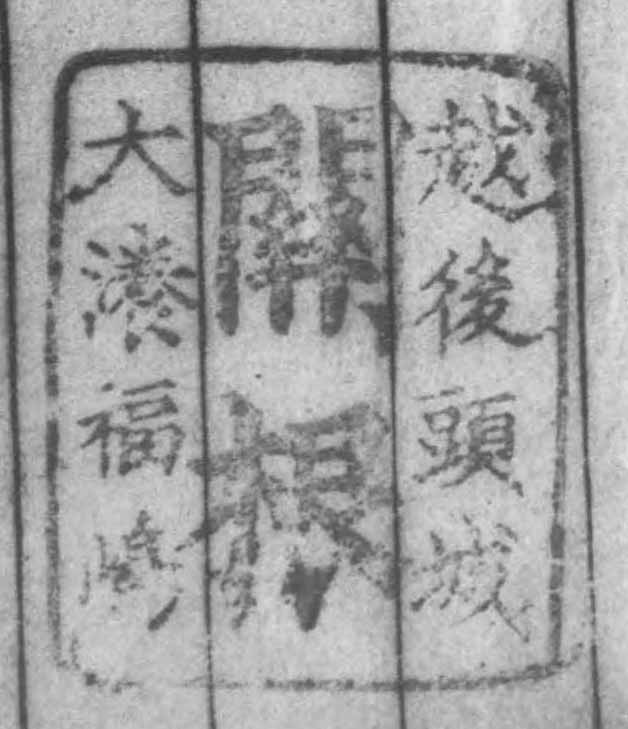 越後頭城
關根
大湊福嶋